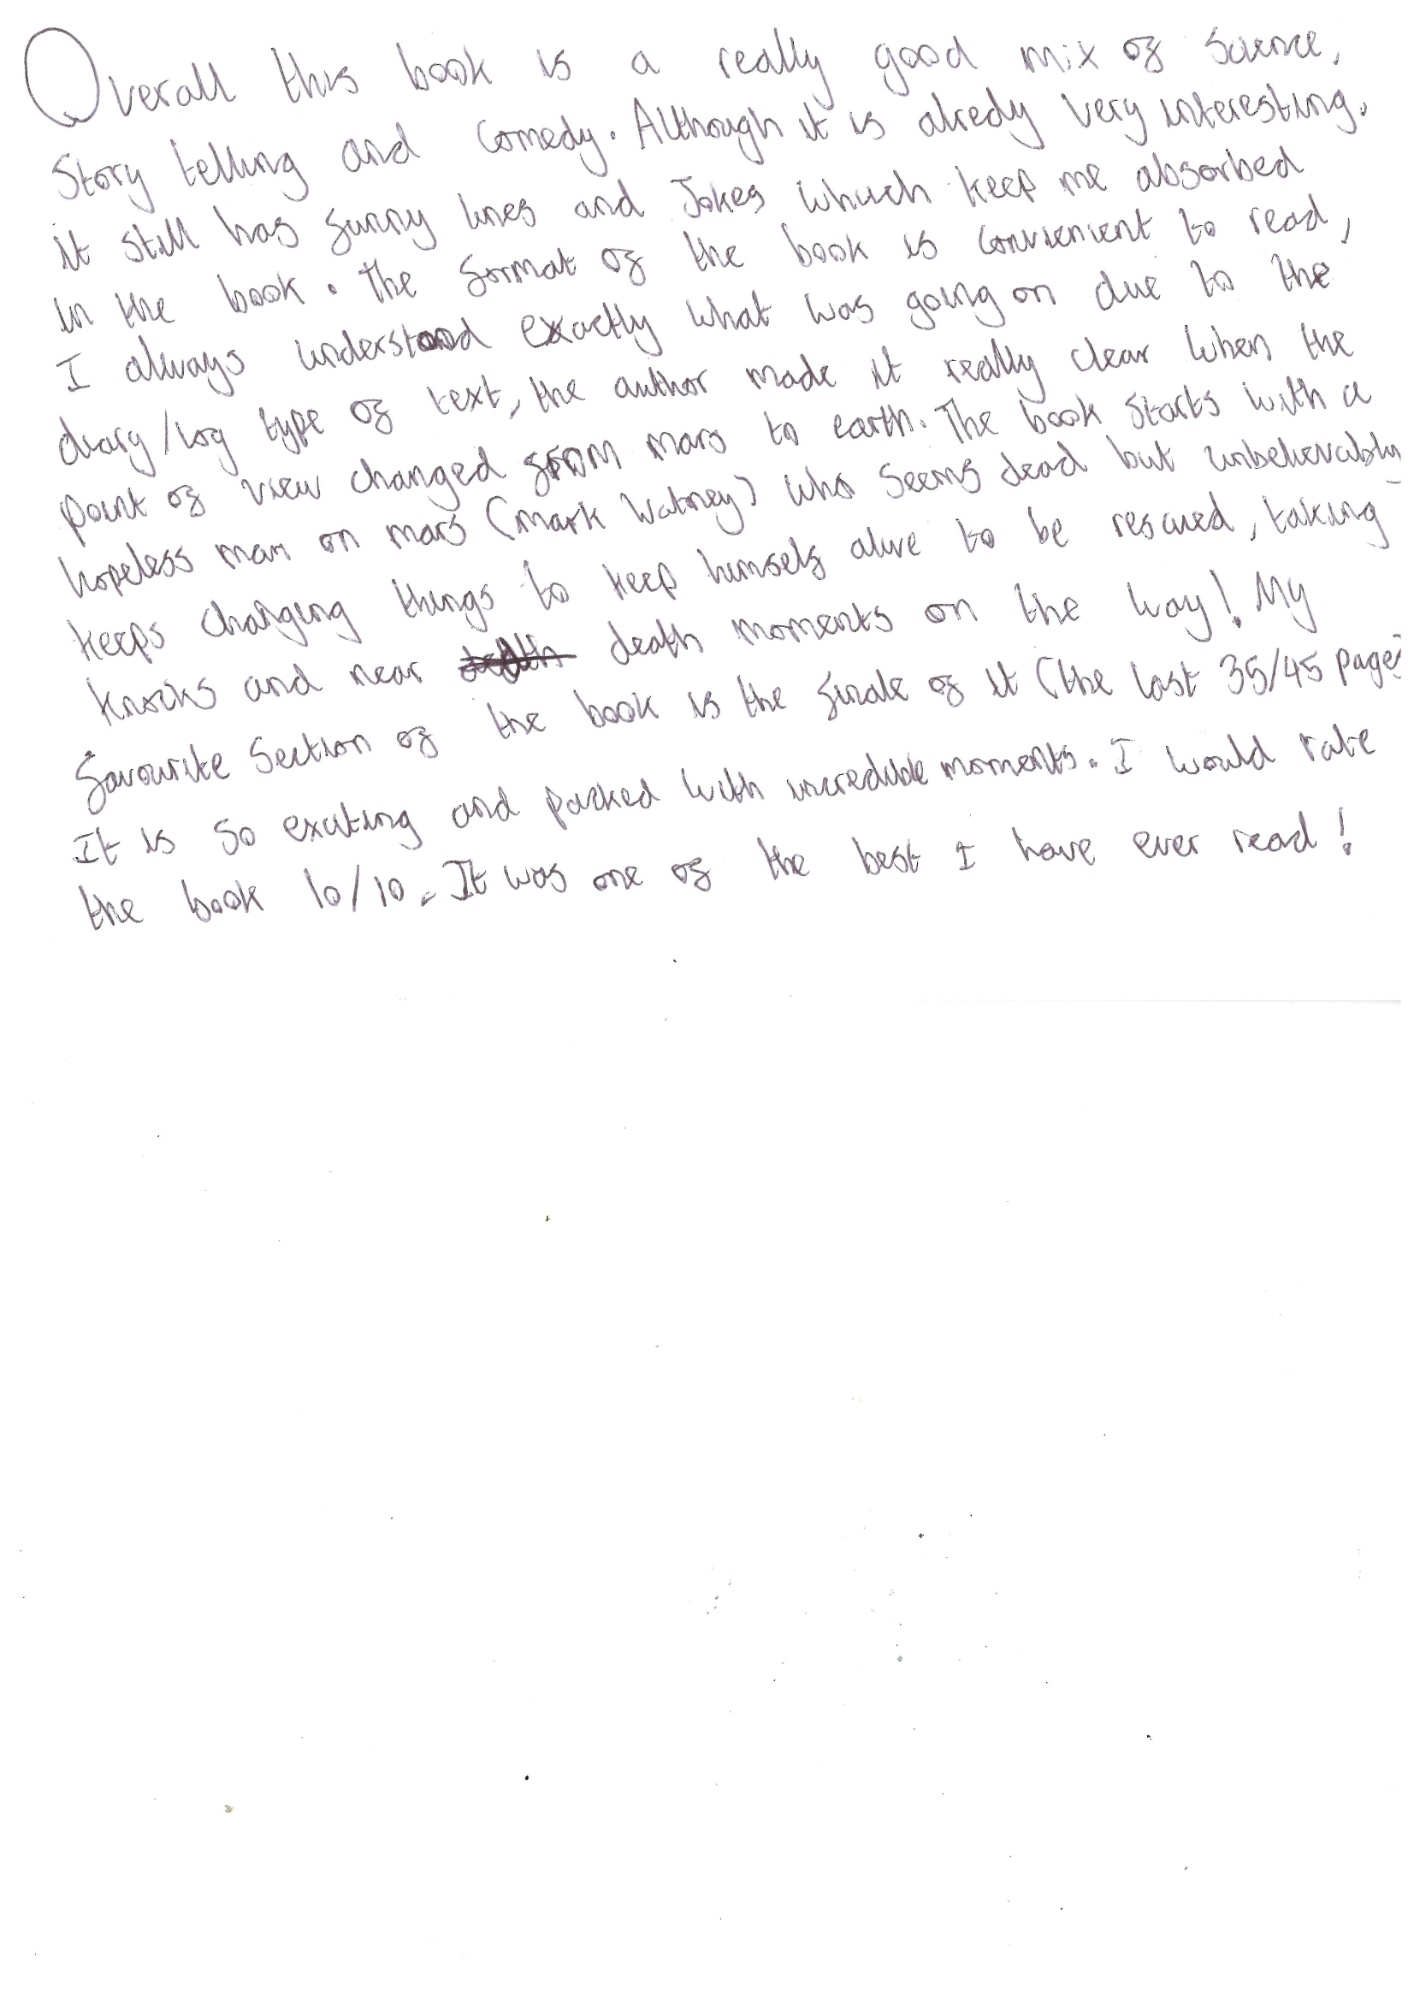 Overall this book is a really good mix of Science,
Story telling and Comedy. Although it is alredy very interesting,
it still has funny lines and Jokes which keep me absorbed
in the book. The format of the book is convienient to read,
I always understood exactly what was going on due to the
diary/log type of text, the author made it really clear when the
point of view changed from mars to earth. The book starts with a
hopeless man on mars (Mark Watney) who seems dead but unbelievably
keeps changing things to keep himself alive to be rescued, taking
knocks and near death moments on the way! My
favourite section of the book is the finale of it (the last 35/45 pages)
It is so exciting and packed with incredible moments. I would rate
the book 10/10. It was one of the best I have ever read!